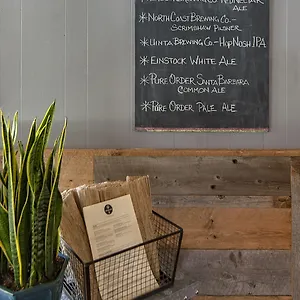 ALE
*NORTH COAST BREWING CO.-
SCRIMSHAW PILSNER
*UINTA BREWING CO.-HOP NOSH IPA
*EINSTOCK WHITE ALE
*PURE ORDER SANTA BARBARA
COMMON ALE
*PURE ORDER PALE ALE